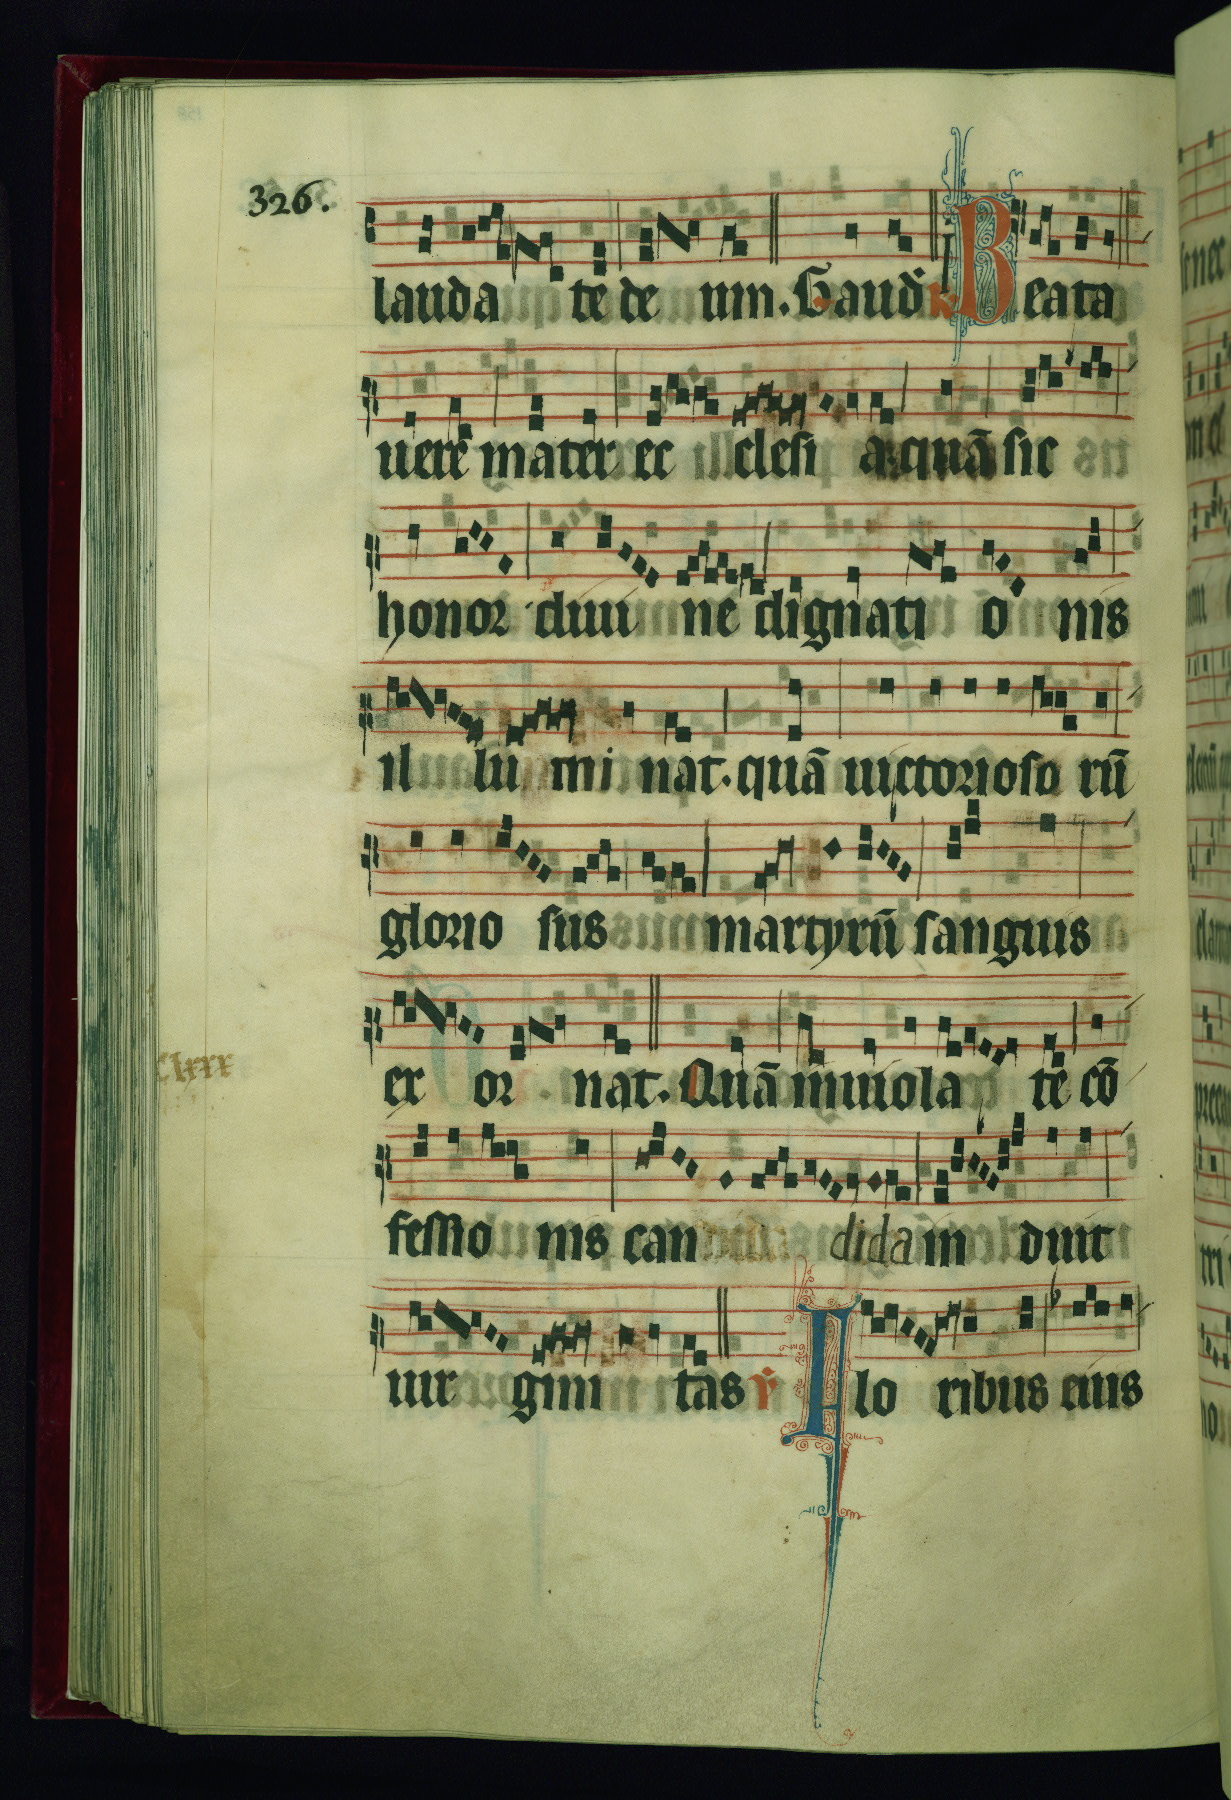 326.
lauda te de um. Gaud̄ R Beata
uere mater ec clesi a. quā sic
honor diui ne dignati o nis
il lu mi nat. quā uictorioso rū
glorio sus martyrū sanguis
ex or nat. Quā inuiola te cō
Clxxx
fessio nis can dida in duit
uir gini tas ℣ Flo ribus eius